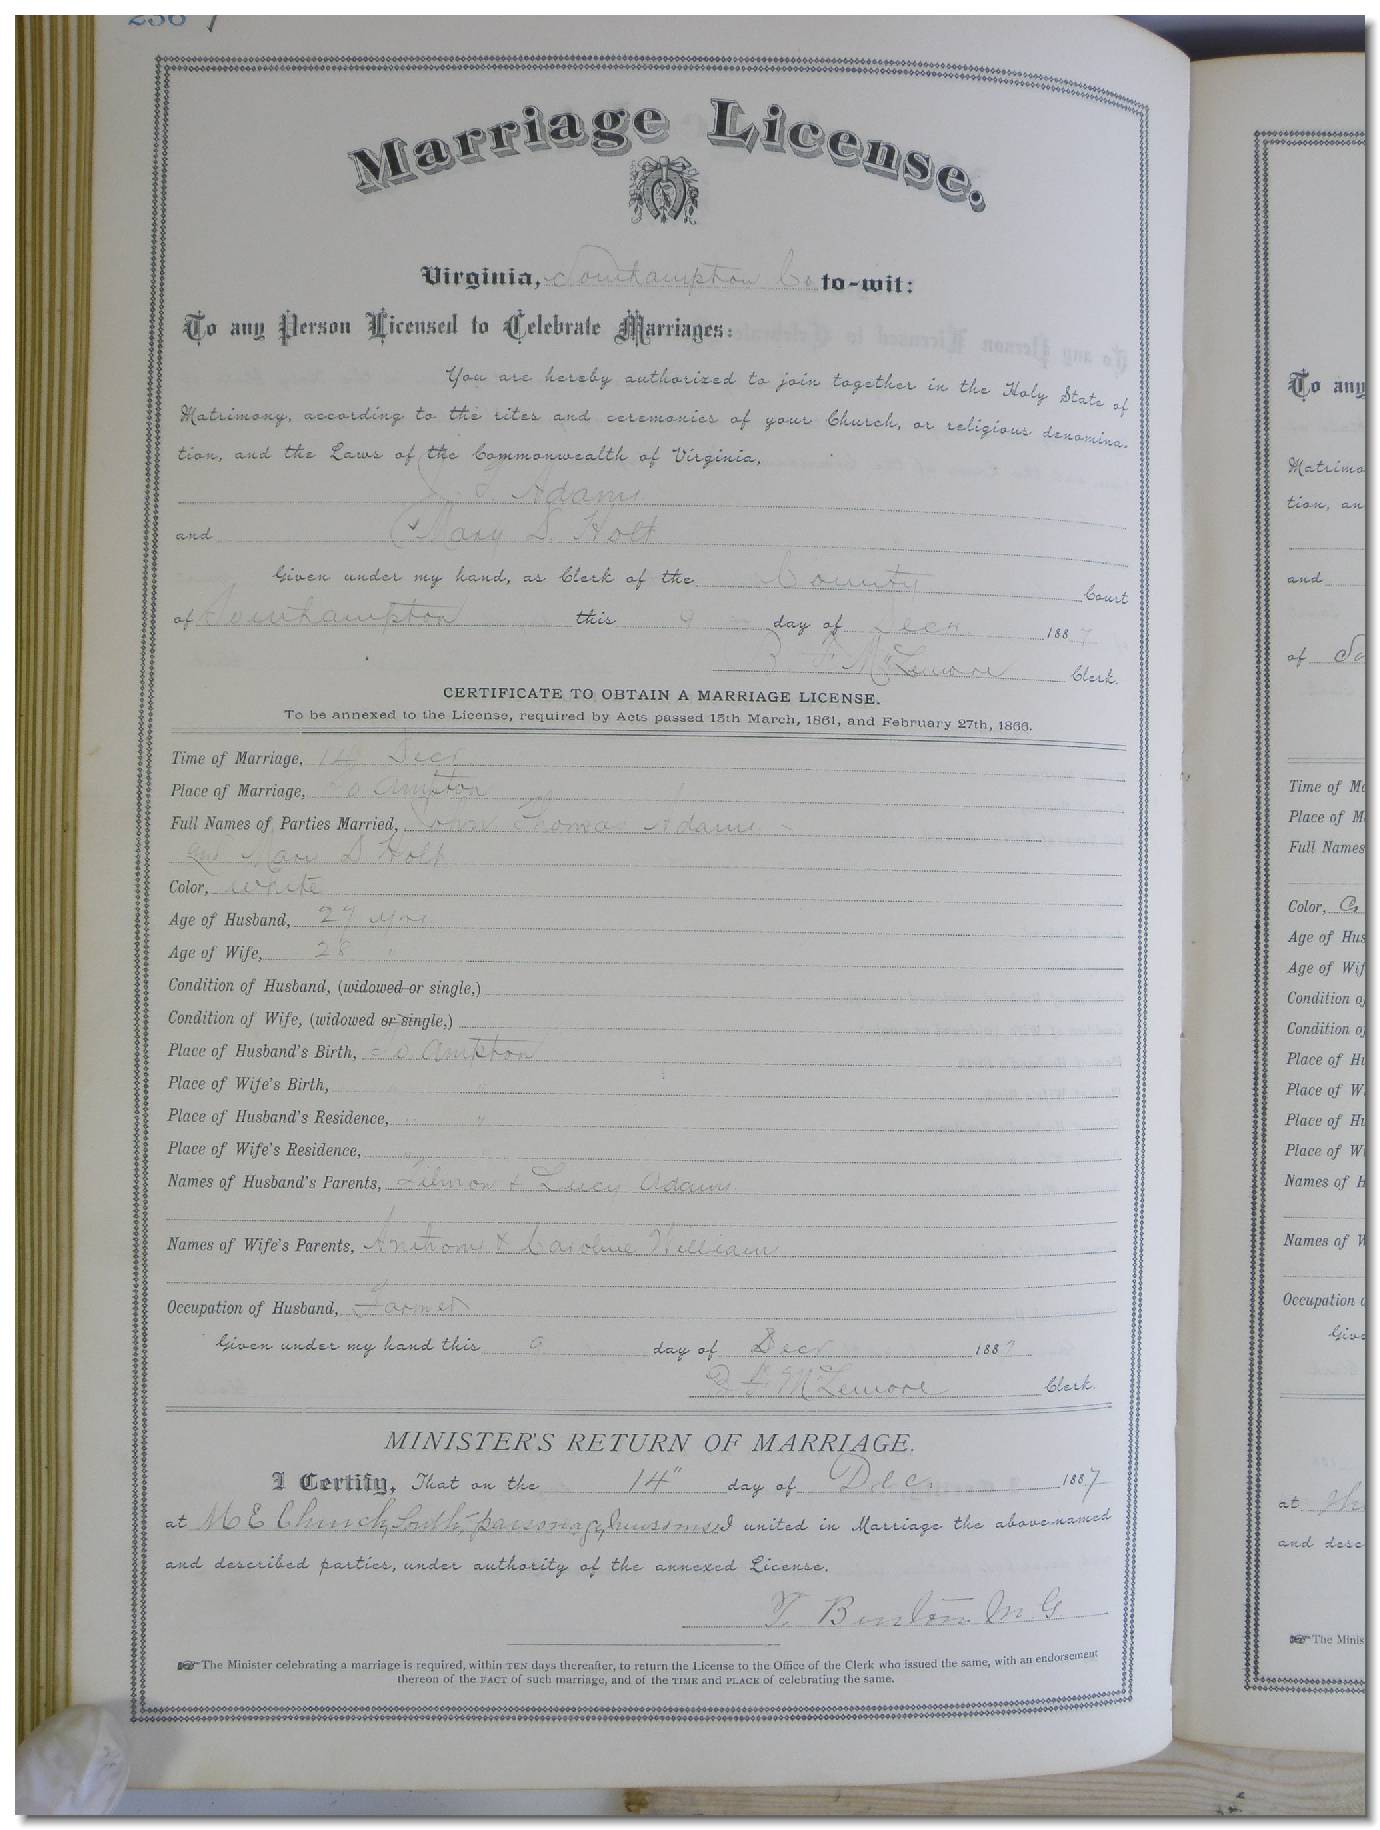 236
Marriage License.
Virginia, Southampton Co to-wit:
To any Person Licensed to Celebrate Marriages:
You are hereby authorized to join together in the Holy State of
Matrimony, according to the rites and ceremonies of your Church, or religious denomina-
tion, and the Laws of the Commonwealth of Virginia,
J T Adams
and Mary S. Holt
Given under my hand, as Clerk of the County Court
of Southampton this 9 day of Decr. 1887
B F McLemore Clerk.
CERTIFICATE TO OBTAIN A MARRIAGE LICENSE.
To be annexed to the License, required by Acts passed 15th March, 1861, and February 27th, 1866.
Time of Marriage, 14 Decr
Place of Marriage, So Ampton
Full Names of Parties Married, John Thomas Adams
and Mary S Holt
Color, white
Age of Husband, 27 yrs
Age of Wife, 28 "
Condition of Husband, (widowed or single,)
Condition of Wife, (widowed or single,)
Place of Husband's Birth, So Ampton
Place of Wife's Birth, " "
Place of Husband's Residence, " "
Place of Wife's Residence, "
Names of Husband's Parents, & Lucy Adams
Names of Wife's Parents, Anthony & Caroline Williams
Occupation of Husband, Farmer
Given under my hand this 9 day of Decr 1887
B F McLemore Clerk.
MINISTER'S RETURN OF MARRIAGE.
I Certify, That on the 14" day of Dec 1887
at M E Church South parsonage I united in Marriage the above-named
and described parties, under authority of the annexed License.
Benton M G
The Minister celebrating a marriage is required, within TEN days thereafter, to return the License to the Office of the Clerk who issued the same, with an endorsement
thereon of the FACT of such marriage, and of the TIME and PLACE of celebrating the same.
To any
Matrimo
tion, an
and
of So
Time of Ma
Place of M
Full Names
Color, Co
Age of Hus
Age of Wif
Condition o
Condition o
Place of Hu
Place of W
Place of Hu
Place of W
Names of H
Names of W
Occupation o
Give
at
and desc
The Minis